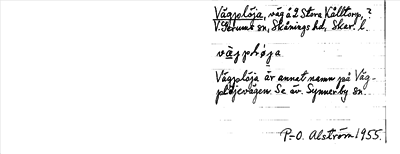 Vägplöja, väg å 2 Stora Kålltorp, ?
V. Gerums sn, Skånings hd, Skar. l.
vägpløja
Vägplöja är annat namn på Väg-
plöjevägen Se äv. Synnerby sn.
P-O. Alström 1955.